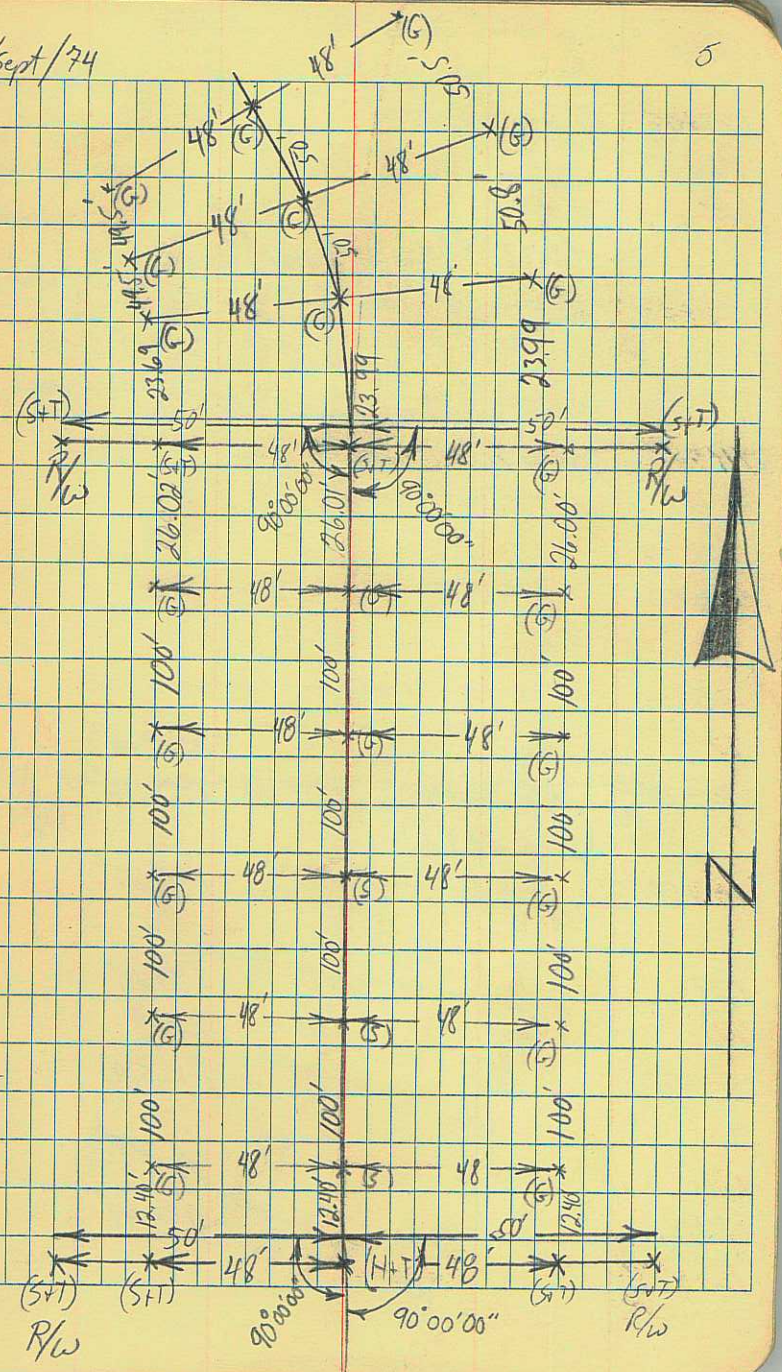 Sept/74 5
48' (G)
48' (G) 50' 48' (G)
49.5' (G) 48' (G) 50.8'
49.5' (G) 50'
48' (G) 48' (G)
23.69 23.99 23.99
(S+T) 50' 50' (S+T)
R/W (S+T) 48' 48' (G) R/W
90°00'00" 90°00'00"
26.02' 26.01' 26.00'
(G) 48' 48' (G)
100' 100' 100'
(G) 48' 48' (G)
100' 100' 100'
(G) 48' (S) 48' (G)
100' 100' 100'
(G) 48' (S) 48' (G)
100' 100' 100'
(G) 48' (S) 48 (G)
12.40' 12.40' 12.40'
50' 50'
48' (H+T) 48'
(S+T) (S+T) (S+T) (S+T)
R/W 90°00'00" 90°00'00" R/W
N